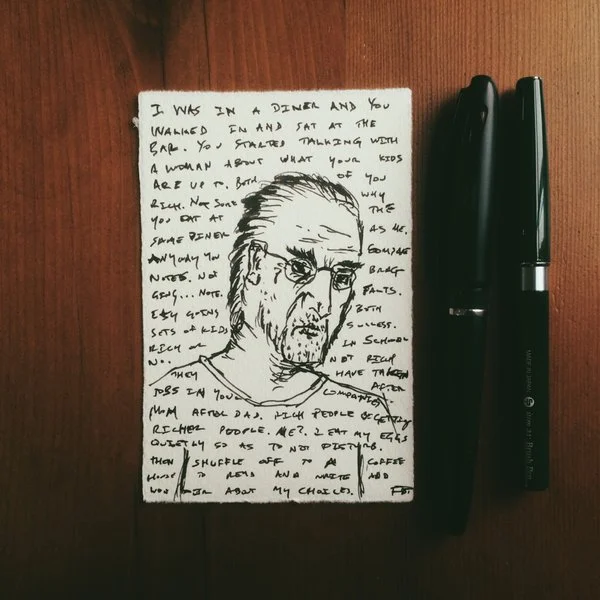 I WAS IN A DINER AND YOU
WALKED IN AND SAT AT THE
BAR. YOU STARTED TALKING WITH
A WOMAN ABOUT WHAT YOUR KIDS
ARE UP TO. BOTH OF YOU
RICH. NOT SURE WHY
YOU EAT AT THE
SAME DINER AS ME.
ANYWAY YOU COMPARE
NOTES. NOT BRAG
GING... NOTE. FACTS.
EASY GOING BOTH
SETS OF KIDS SUCCESS.
RICH OR IN SCHOOL
NOT RICH
THEY HAVE TAKEN
JOBS IN YOUR COMPANIES. AFTER
MOM AFTER DAD. RICH PEOPLE BEGETTING
RICHER PEOPLE. ME? I EAT MY EGGS
QUIETLY SO AS TO NOT DISTURB.
THEN SHUFFLE OFF TO A COFFEE
HOUSE TO READ AND WRITE AND
WONDER ABOUT MY CHOICES.